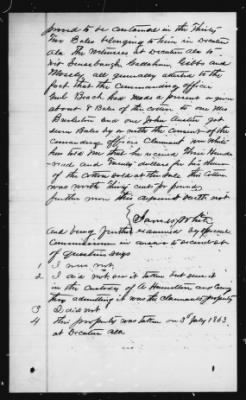 proved to be contained in the Thirty
Two Bales belonging to him in Decatur
Ala The witnesses at Decatur Ala to
wit Gibbs and
Mosely all generally attested to the
fact that the commanding officer
had made a present or given
about 8 Bales of the cotton to one Mrs
and one John got
seven Bales by or with the consent of the
commanding officer Claimant
has told me that he received Three Hundred
and dollars for his share
of the cotton sold at this sale This cotton
was worth thirty cents per pound
further more this deponent saith not
James White
And being further examined by special
Commissioner in answer to second set
of questions says
1 I was not
2 I did not see it taken but saw it
in the custody of A Hamilton and Company
they admitting it was the claimants property
3 I did not
4 This property was taken on 3d July 1863
at Decatur Ala